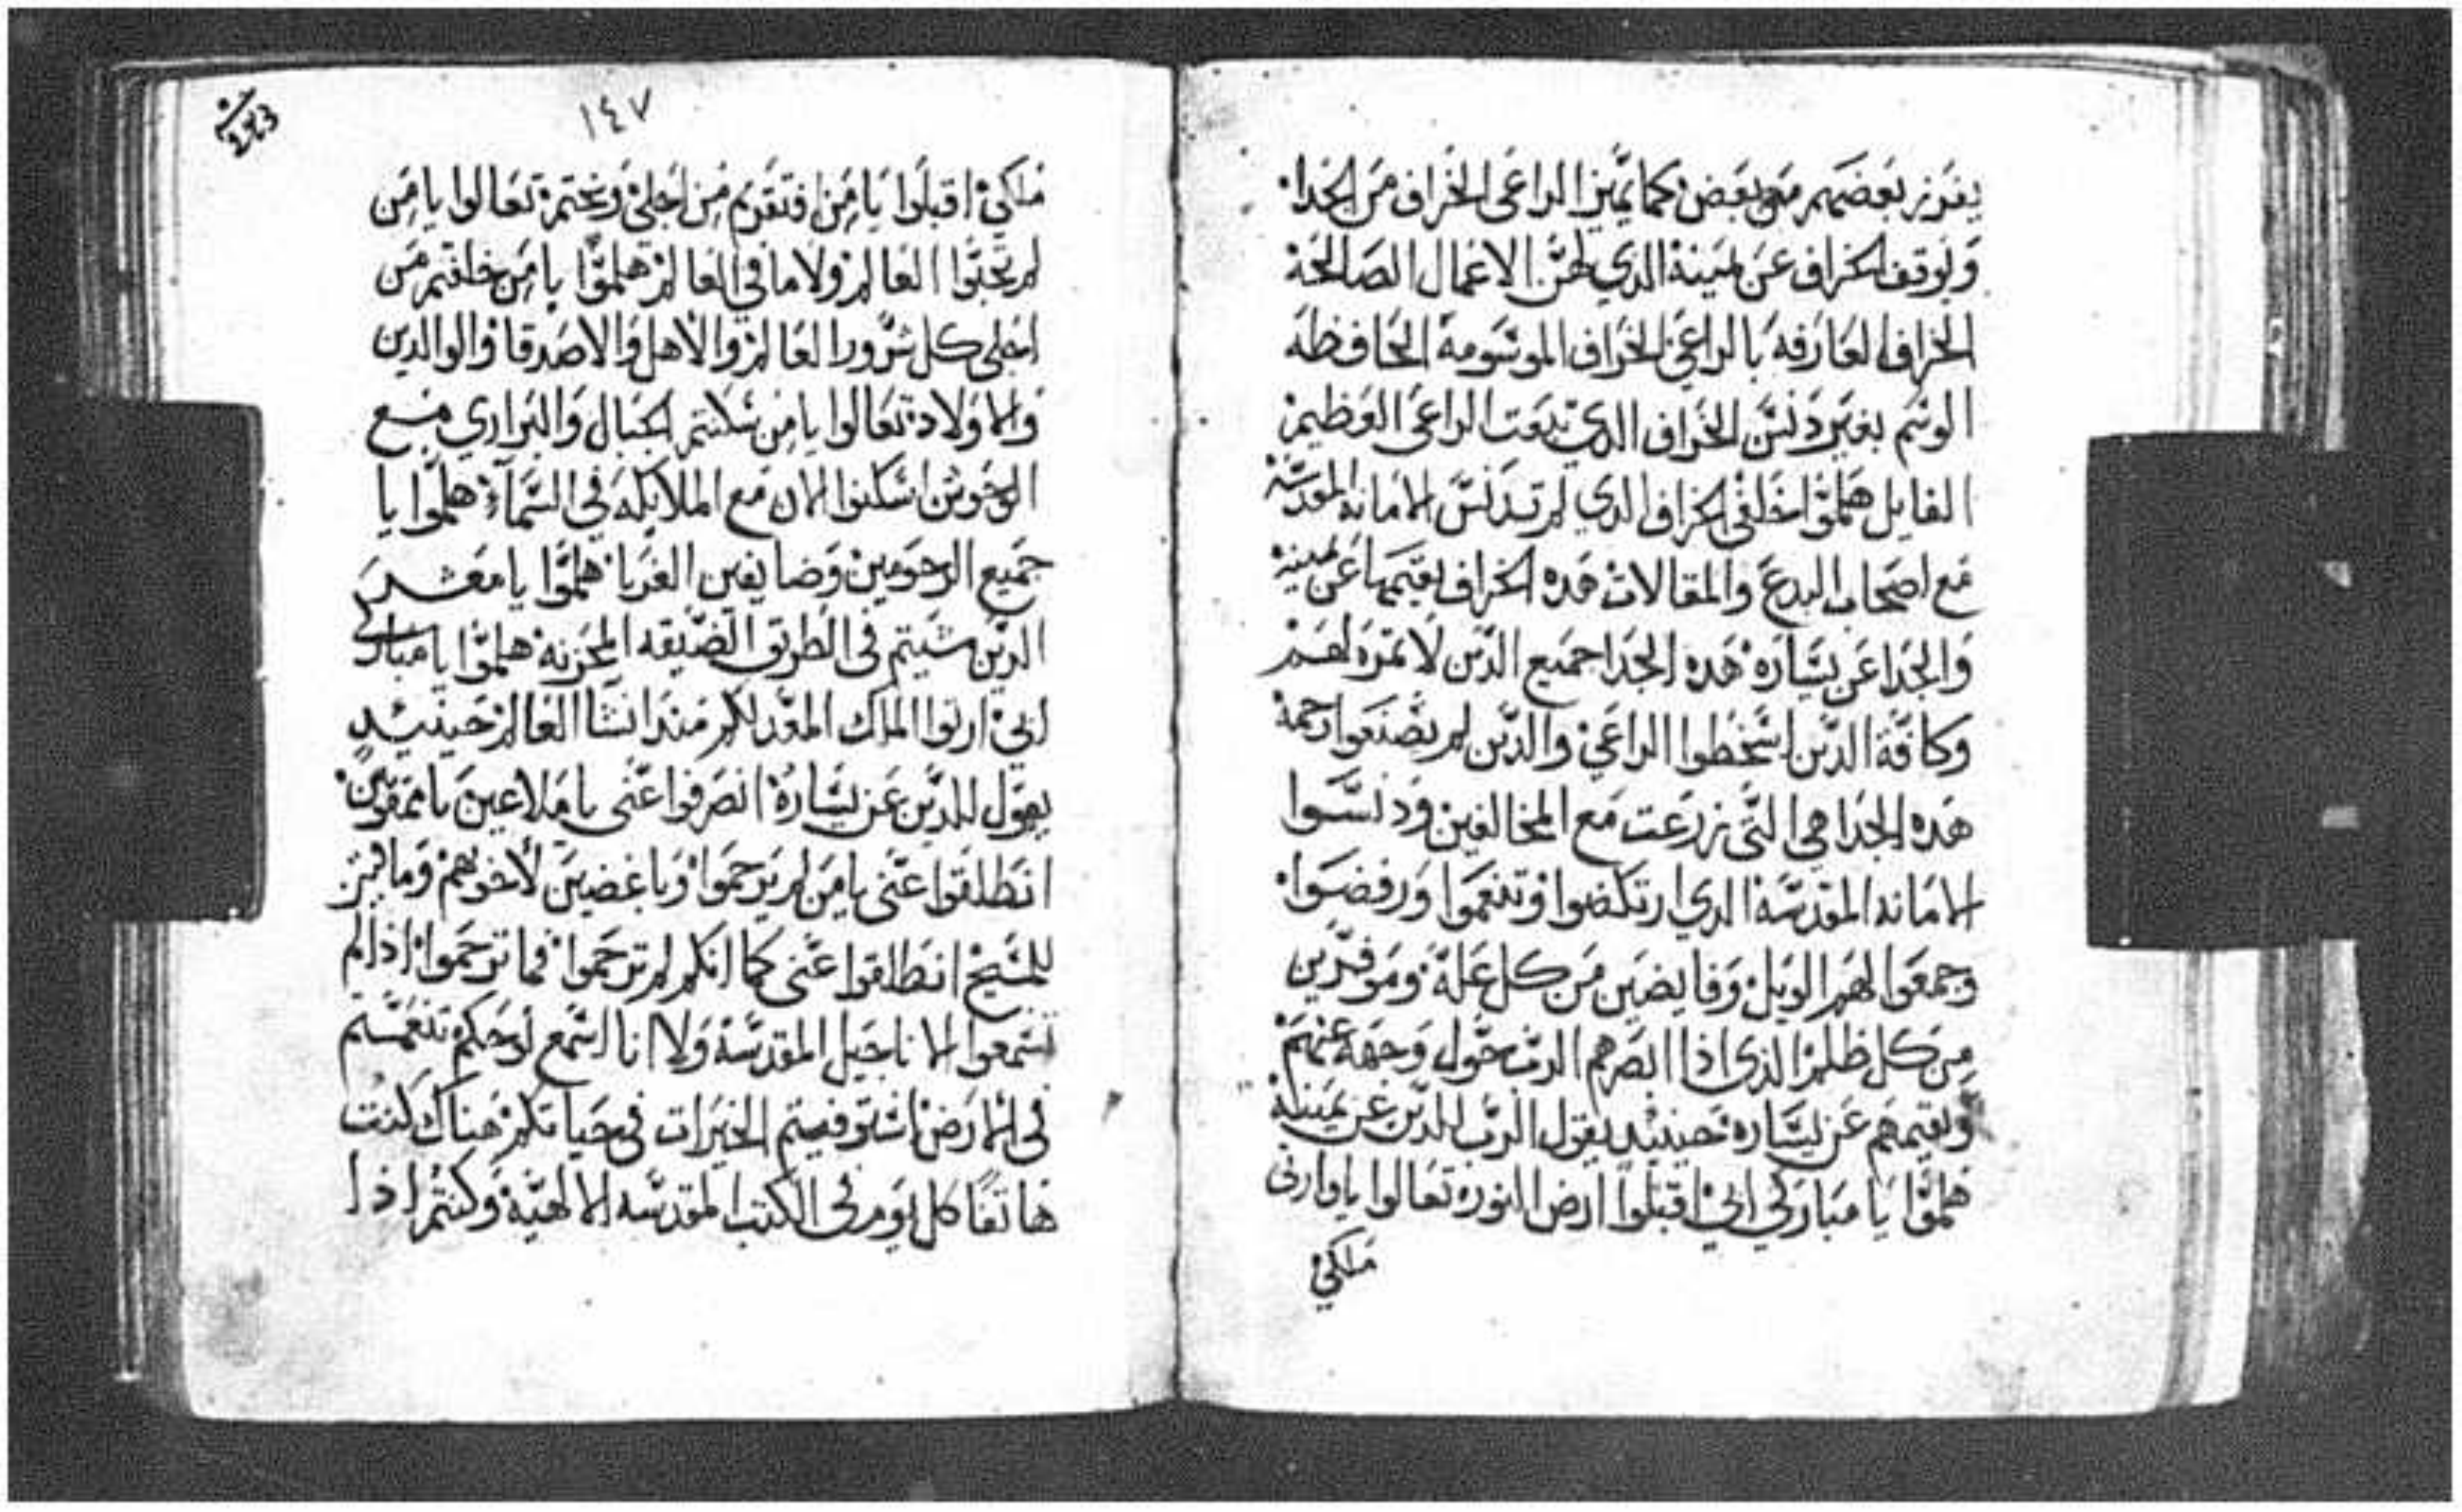 يفرز بعضهم من بعض كما يميز الراعي الخراف من الجدا
ويوقف الخراف عن يمينة الدي لهن الاعمال الصالحة
الخراف العارفه بالراعي الخراف الموسومة الحافظه
الوسم بغير دنس الخراف الدي تبعت الراعي العظيم
القايل هلموا خلفي الخراف الدي لم تدنس الامانه المقدسة
مع اصحاب البدع والمقالات هده الخراف يقيمها عن يمينه
والجدا عن يساره هده الجدا جميع الدين لا تمره لهم
وكافة الدين اسخطوا الراعي والدين لم يصنعوا رحمة
هده الجدا هي التي زرعت مع المخالفين ودنسوا
الامانه المقدسة الدي ارتكضوا وتنعموا ورفضوا
وجمعوا لهم الويل وفايضين من كل علة وموفرين
من كل ظلم الذي اذا ابصرهم الرب حول وجهه عنهم
ويقيمهم عن يساره حينيد يقول الرب للدين عن يمينة
هلموا يا مباركي ابي اقبلوا ارض النور تعالوا يا وارثي
ملكي
١٤٧
ملكي اقبلوا يا من افتقرتم من اجلي وبختم تعالوا يا من
لم تحبوا العالم ولا ما في العالم هلموا يا من خلفتم من
اجلي كل شرور العالم والاهل والاصدقا والوالدين
والاولاد تعالوا يا من سكنتم الجبال والبراري مع
الوحوش اسكنوا الان مع الملايكه في السماء هلموا يا
جميع الرحومين وضايفين الغربا هلموا يا معشر
الدين مشيتم في الطريق الضيقه المحزنه هلموا يا مباركي
ابي ارثوا الملك المعد لكم مند انشا العالم حينيد
يقول للدين عن يساره انصرفوا عني يا ملاعين يا ممقوتين
انطلقوا عني يا من لم يرحموا ويا باغضين لاخوتهم
للمسيح انطلقوا عني كما انكم لم ترحموا فما ترحموا اذا لم
تسمعوا الاناجيل المقدسة ولا انا اسمع لنوحكم تنعمتم
في الارض استوفيتم الخيرات في حياتكم هناك كنت
هاتفا كل يوم في الكتب المقدسه الالهية وكنتم اذا